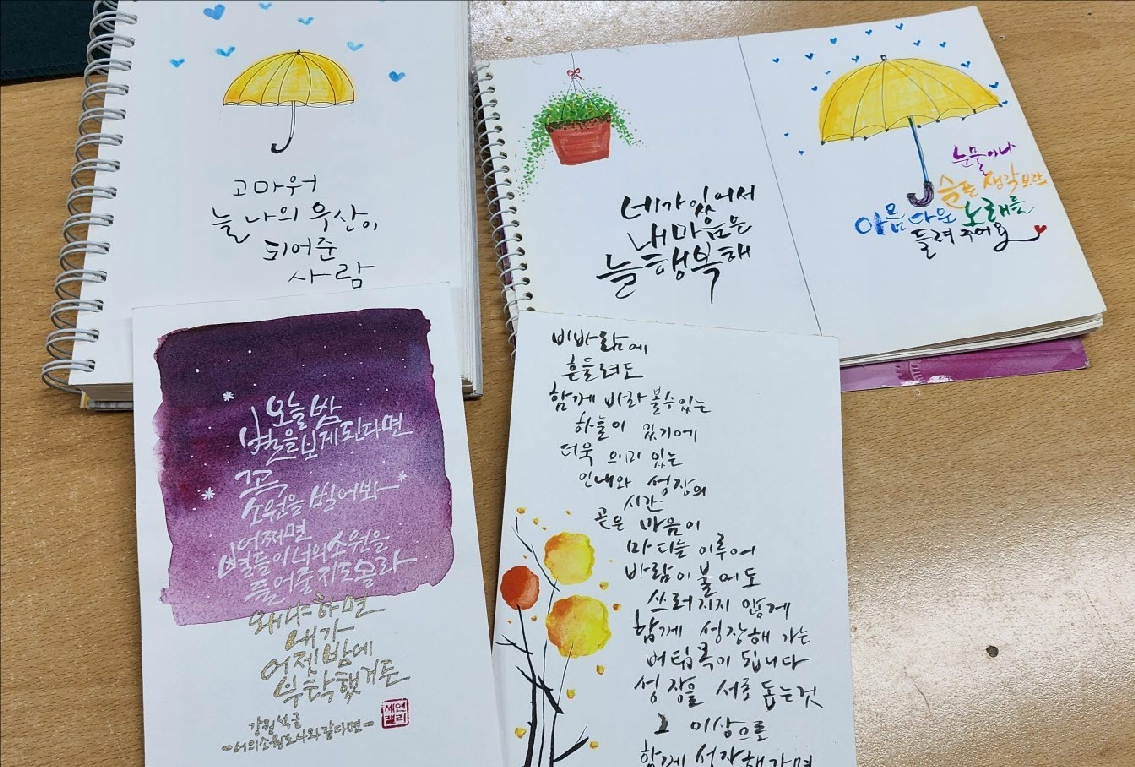 고마워
늘 나의 우산이
되어준
사람
네가 있어서
내 마음은
늘 행복해
눈물이나
슬픈 생각보단
아름다운 노래를
들려주어요
오늘밤
별을 보게 된다면
꼭
소원을 빌어봐
어쩌면
별들이 너의 소원을
들어줄지도 몰라
왜냐하면
내가
어젯밤에
부탁했거든
너의 소원도 나와 같다면
비바람에
흔들려도
함께 바라 볼 수 있는
하늘이 있기에
더욱 의미 있는
인내와 성장의
시간
곧은 마음이
마디를 이루어
바람이 불어도
쓰러지지 않게
함께 성장해 가는
버팀목이 됩니다
성장을 서로 돕는것
그 이상으로
함께 성장해가며